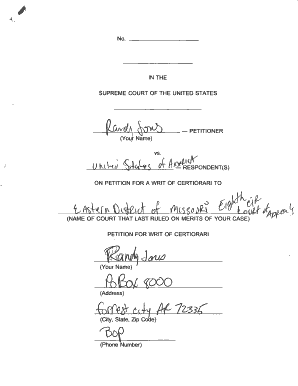 No.
IN THE
SUPREME COURT OF THE UNITED STATES
Randy Jons — PETITIONER
(Your Name)
vs.
United States of America — RESPONDENT(S)
ON PETITION FOR A WRIT OF CERTIORARI TO
Eastern District of Missouri Eighth Cir Court of Appeals
(NAME OF COURT THAT LAST RULED ON MERITS OF YOUR CASE)
PETITION FOR WRIT OF CERTIORARI
Randy Jons
(Your Name)
PO Box 8000
(Address)
Forrest city AR 72335
(City, State, Zip Code)
BOP
(Phone Number)